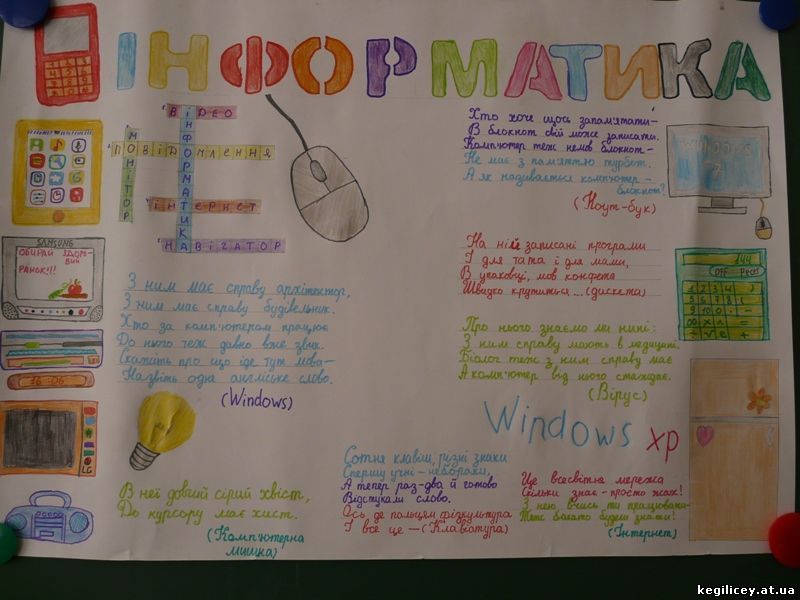 ІНФОРМАТИКА
ВІДЕО
МОНІТОР
ПОВІДОМЛЕННЯ
ІНФОРМАТИКА
ІНТЕРНЕТ
НАВІГАТОР
Хто хоче щось запам'ятати -
В блокнот свій може записати.
Комп'ютер теж немов блокнот -
Не має з пам'яттю турбот.
А як називається комп'ютер -
блокнот?
(Ноут-бук)
WINDOWS
7
SAMSUNG
ОБИРАЙ ЗДОРО-
ВИЙ
РАНОК!!!
На ній записані програми
І для тата і для мами,
В упаковці, мов конфета
Швидко крутиться... (дискета)
144
OFF
З ним має справу архітектор,
З ним має справу будівельник.
Хто за комп'ютером працює
До нього теж давно вже звик.
Скажіть про що іде тут мова -
Назвіть одне англійське слово.
(Windows)
Про нього знаємо ми нині:
З ним справу мають в медицині.
Біолог теж з ним справу має
А комп'ютер від нього страждає.
(Вірус)
16:06
LG
Windows XP
Сотня клавіш, різні знаки
Спершу учні - неборяки,
А тепер раз-два й готово
Відстукали слово.
Ось де пальцям фізкультура
І все це - (Клавіатура)
Це всесвітня мережа
Скільки знає - просто жах!
З нею вчись ти працювати
Теж багато будеш знати!
(Інтернет)
В неї довгий сірий хвіст,
До курсору має хист.
(Комп'ютерна
мишка)
kegilicey.at.ua